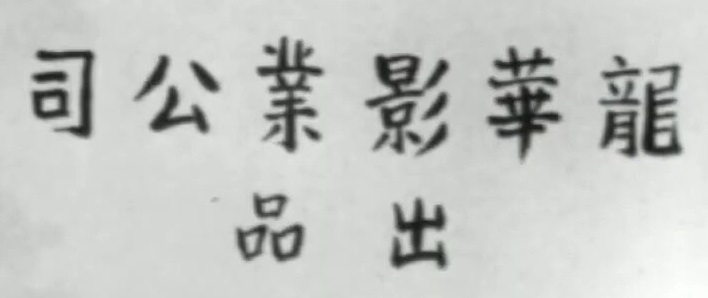 龍華影業公司
出品